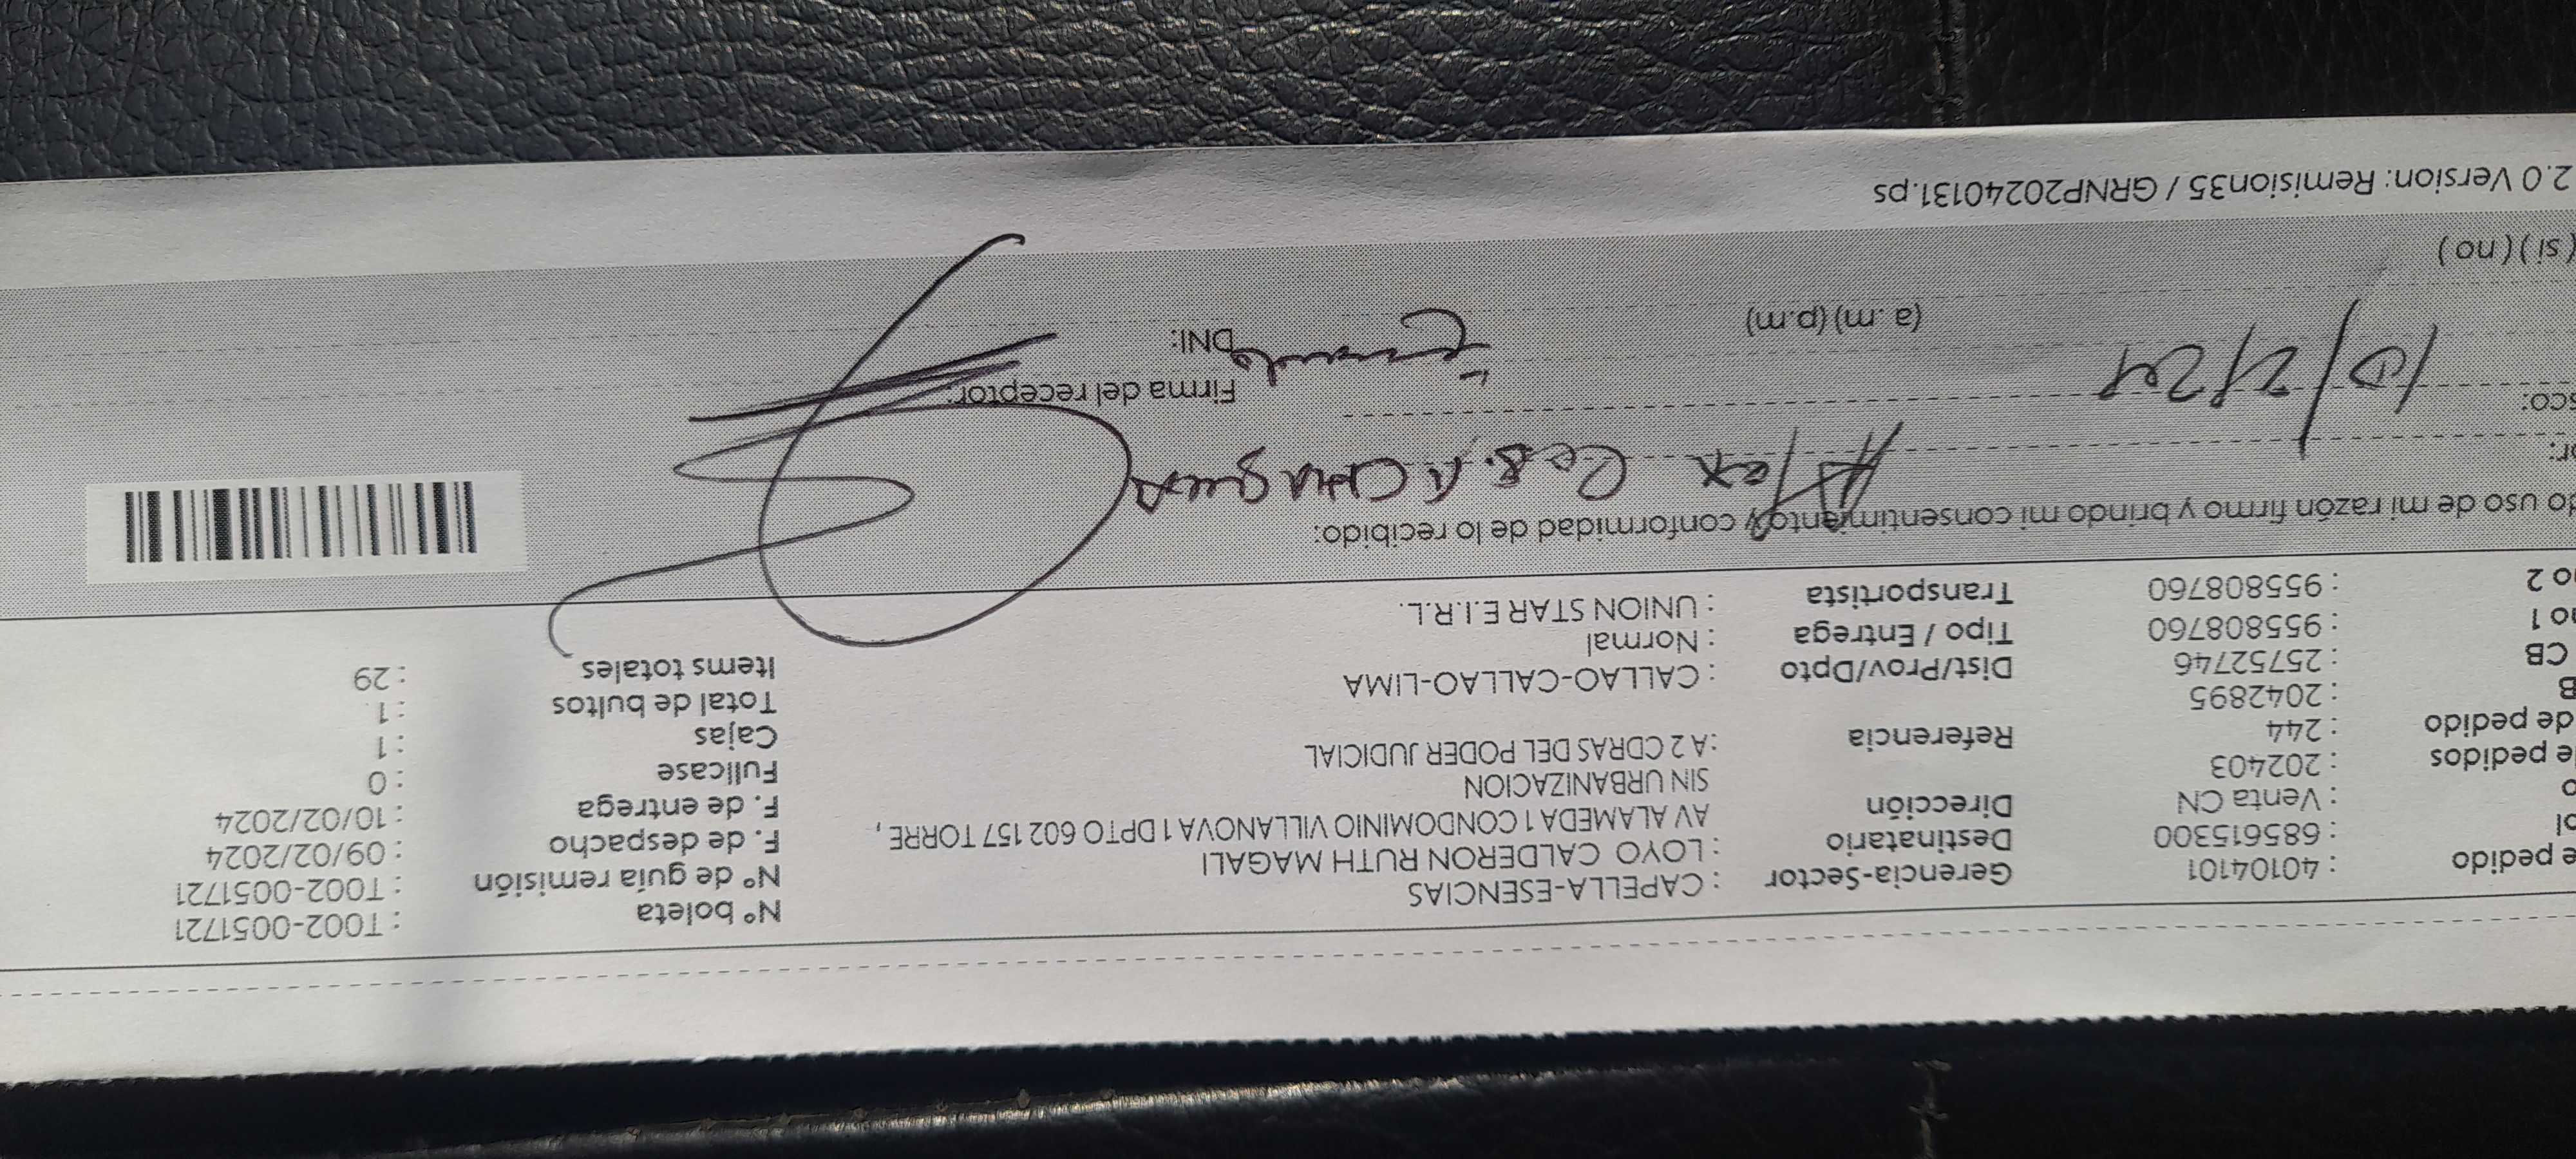 e pedido : 40104101 Gerencia-Sector : CAPELLA-ESENCIAS Nº boleta : T002-0051721
ol : 685615300 Destinatario : LOYO CALDERON RUTH MAGALI Nº de guía remisión : T002-0051721
o : Venta CN Dirección AV ALAMEDA 1 CONDOMINIO VILLANOVA 1 DPTO 602 157 TORRE , F. de despacho : 09/02/2024
de pedidos : 202403 SIN URBANIZACION F. de entrega : 10/02/2024
de pedido : 244 Referencia : A 2 CDRAS DEL PODER JUDICIAL Fullcase : 0
B : 2042895 Cajas : 1
CB : 25752746 Dist/Prov/Dpto : CALLAO-CALLAO-LIMA Total de bultos : 1
no 1 : 955808760 Tipo / Entrega : Normal Items totales : 29
no 2 : 955808760 Transportista : UNION STAR E.I.R.L.
do uso de mi razón firmo y brindo mi consentimiento y conformidad de lo recibido:
or: Alex
sco: 10/2/24 Firma del receptor:
(a .m) (p.m) DNI:
( si ) ( no )
2.0 Version: Remision35 / GRNP20240131.ps